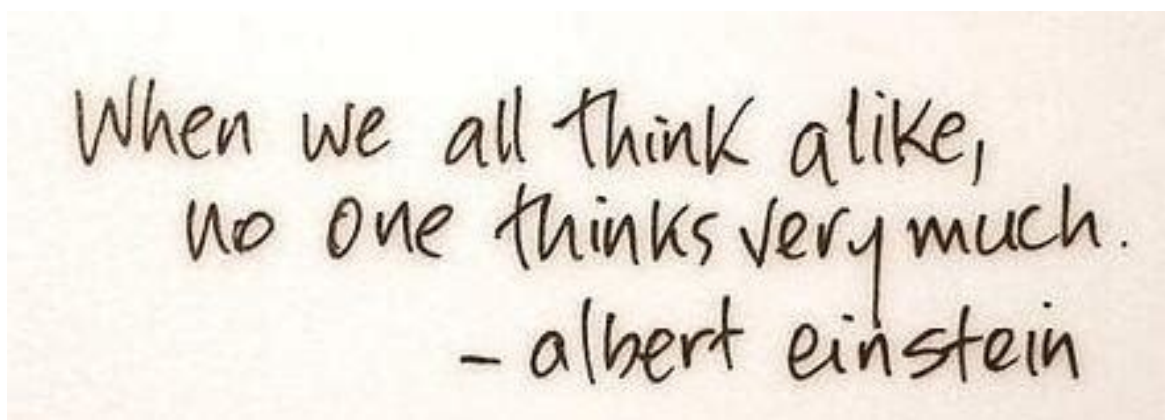 When we all think alike,
no one thinks very much.
- albert einstein